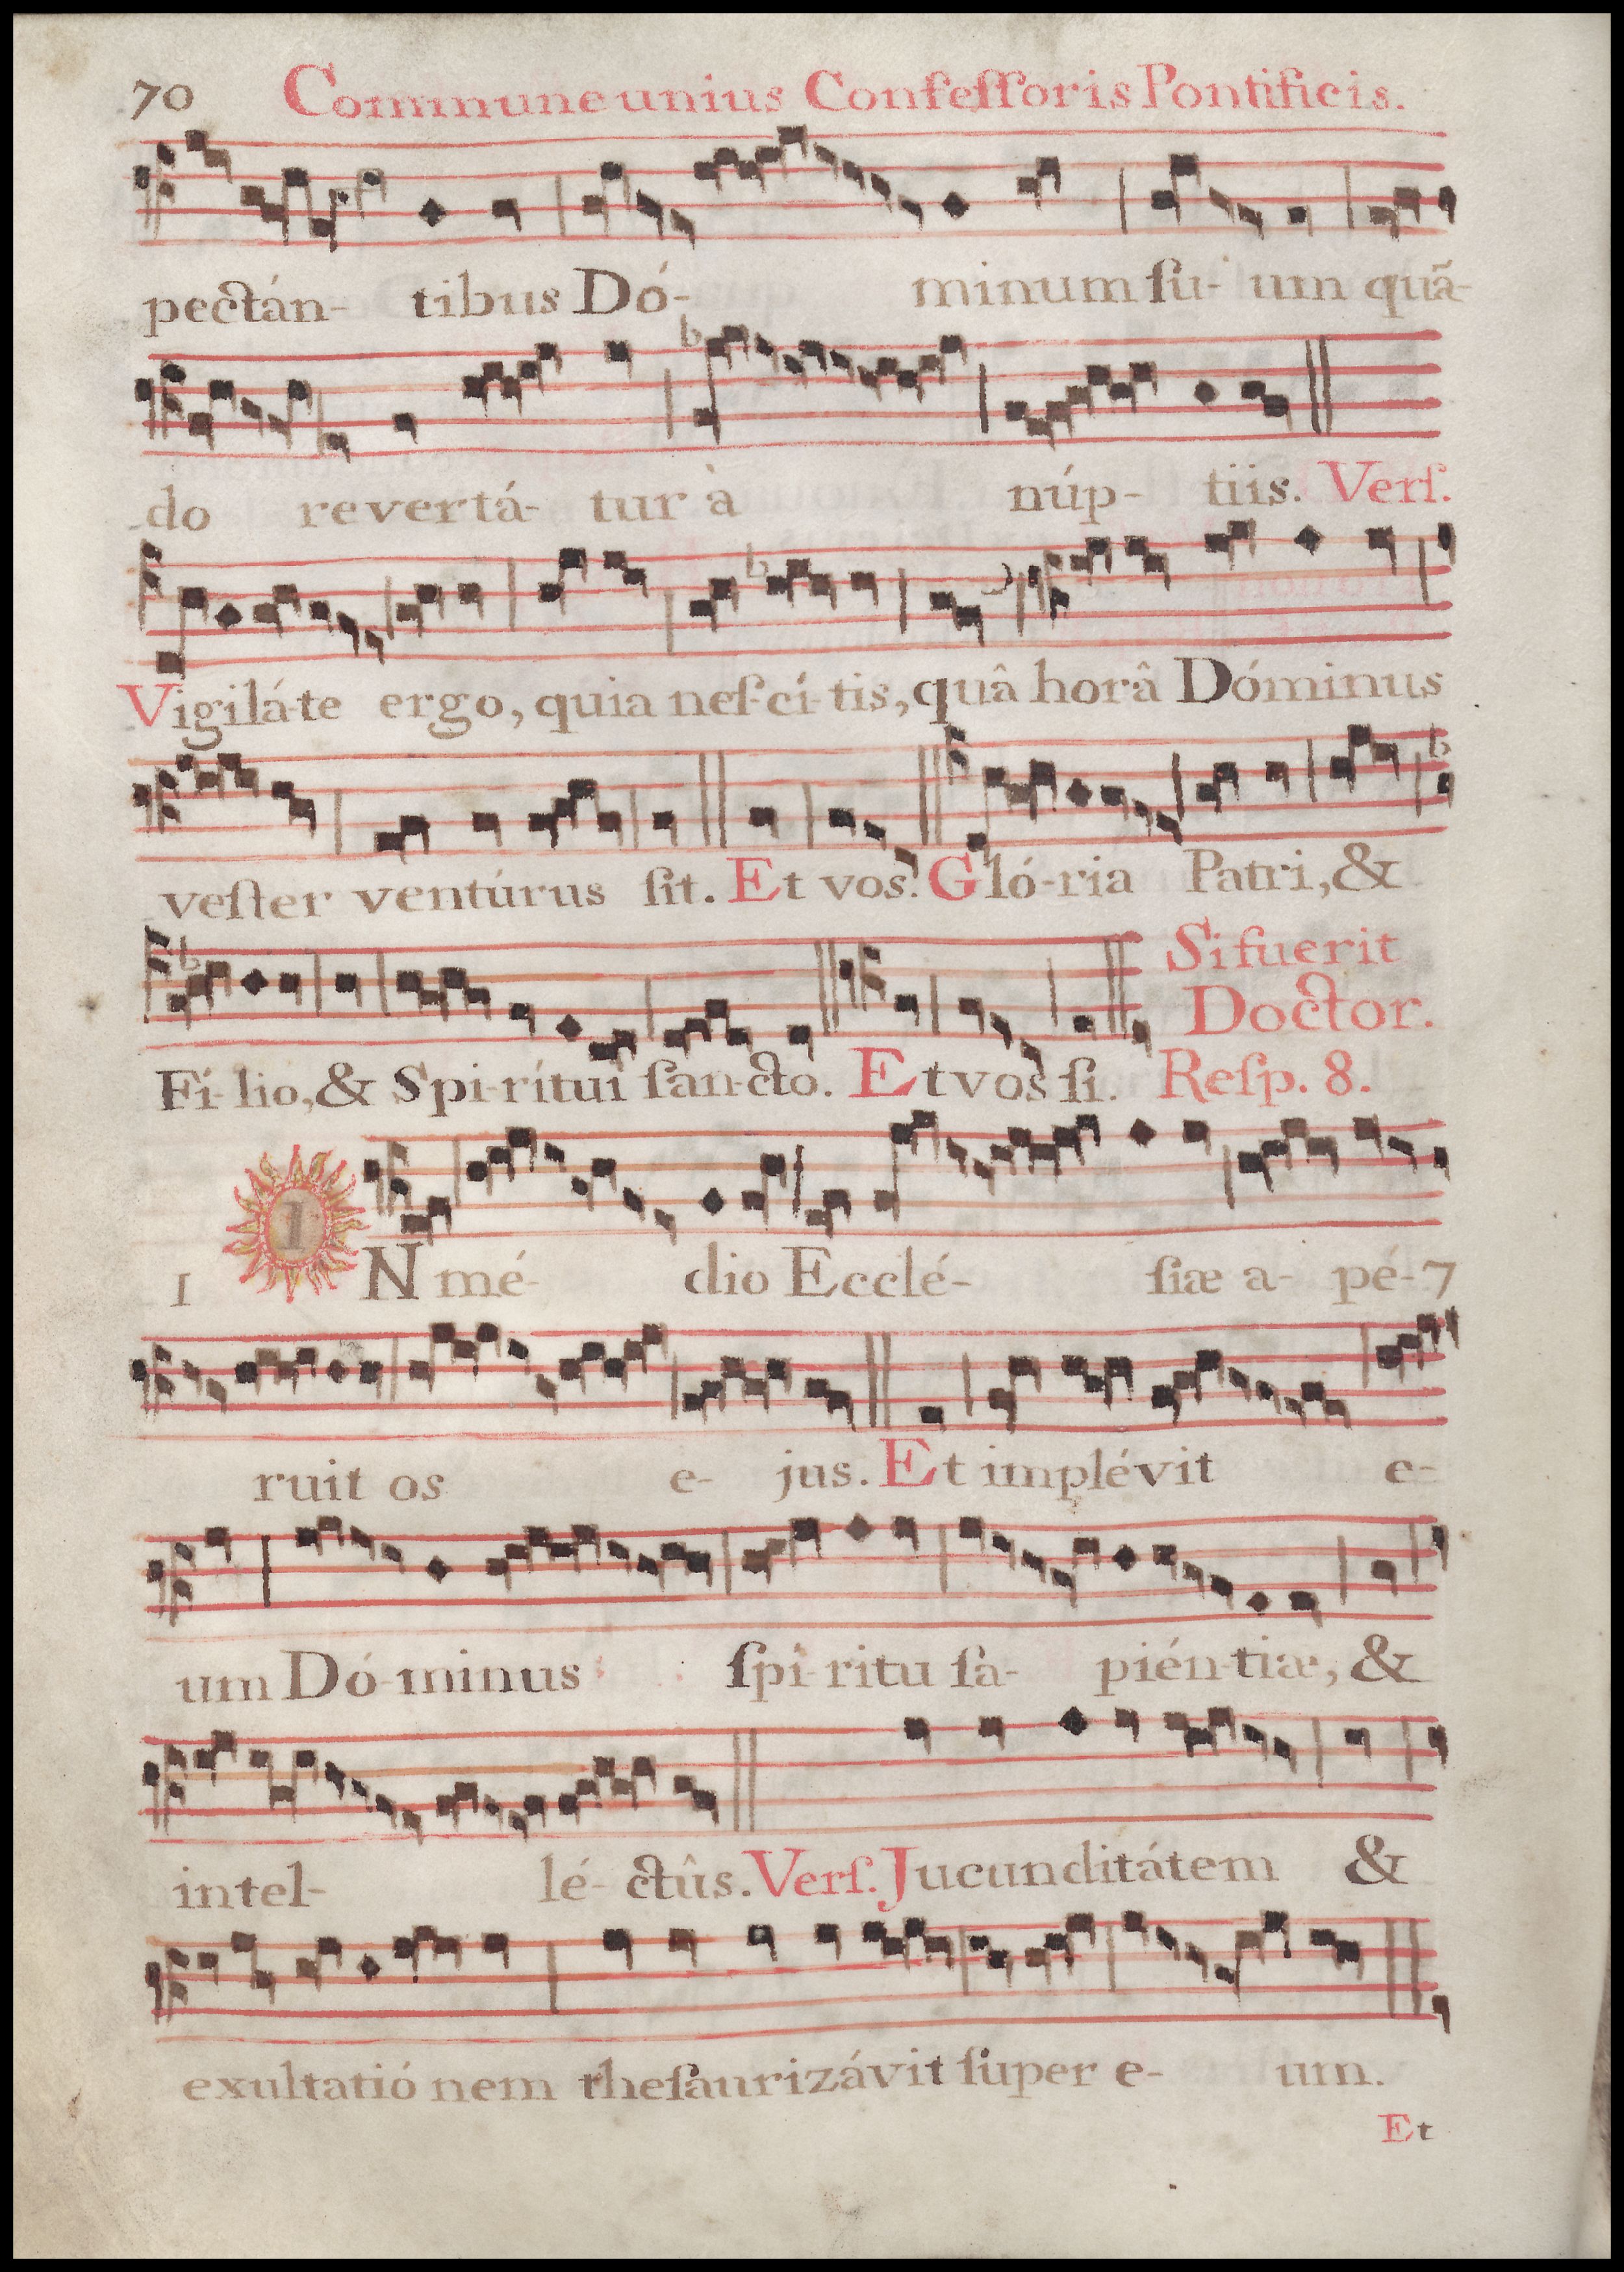 70 Commune unius Confeſſoris Pontificis.
pectán- tibus Dó- minum ſu- um quã-
do revertá- tur à núp- tiis. Verſ.
Vigilá-te ergo, quia neſ-cí-tis, quâ horâ Dóminus
veſter ventúrus ſit. Et vos. Gló-ria Patri, &
Sifuerit
Doctor.
Fí-lio, & Spi-rítui ſan-cto. Et vos ſi. Reſp. 8.
1 I N mé- dio Ecclé- ſiæ a- pé-7
ruit os e- jus. Et implévit e-
um Dó-minus ſpí-ritu ſa- pién-tiæ, &
intel- lé- ctûs. Verſ. Jucunditátem &
exultatió nem theſaurizávit ſuper e- um.
Et